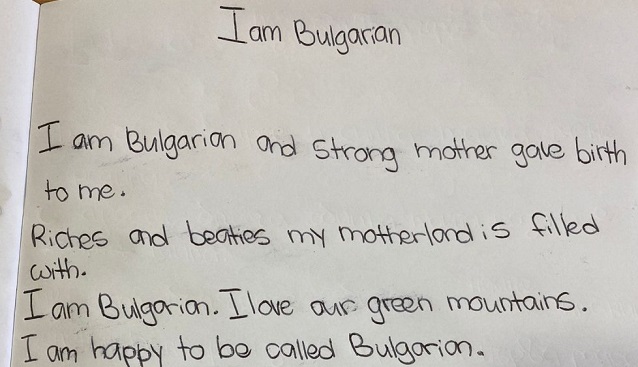 I am Bulgarian
I am Bulgarian and strong mother gave birth
to me.
Riches and beaties my motherland is filled
with.
I am Bulgarian. I love our green mountains.
I am happy to be called Bulgarian.